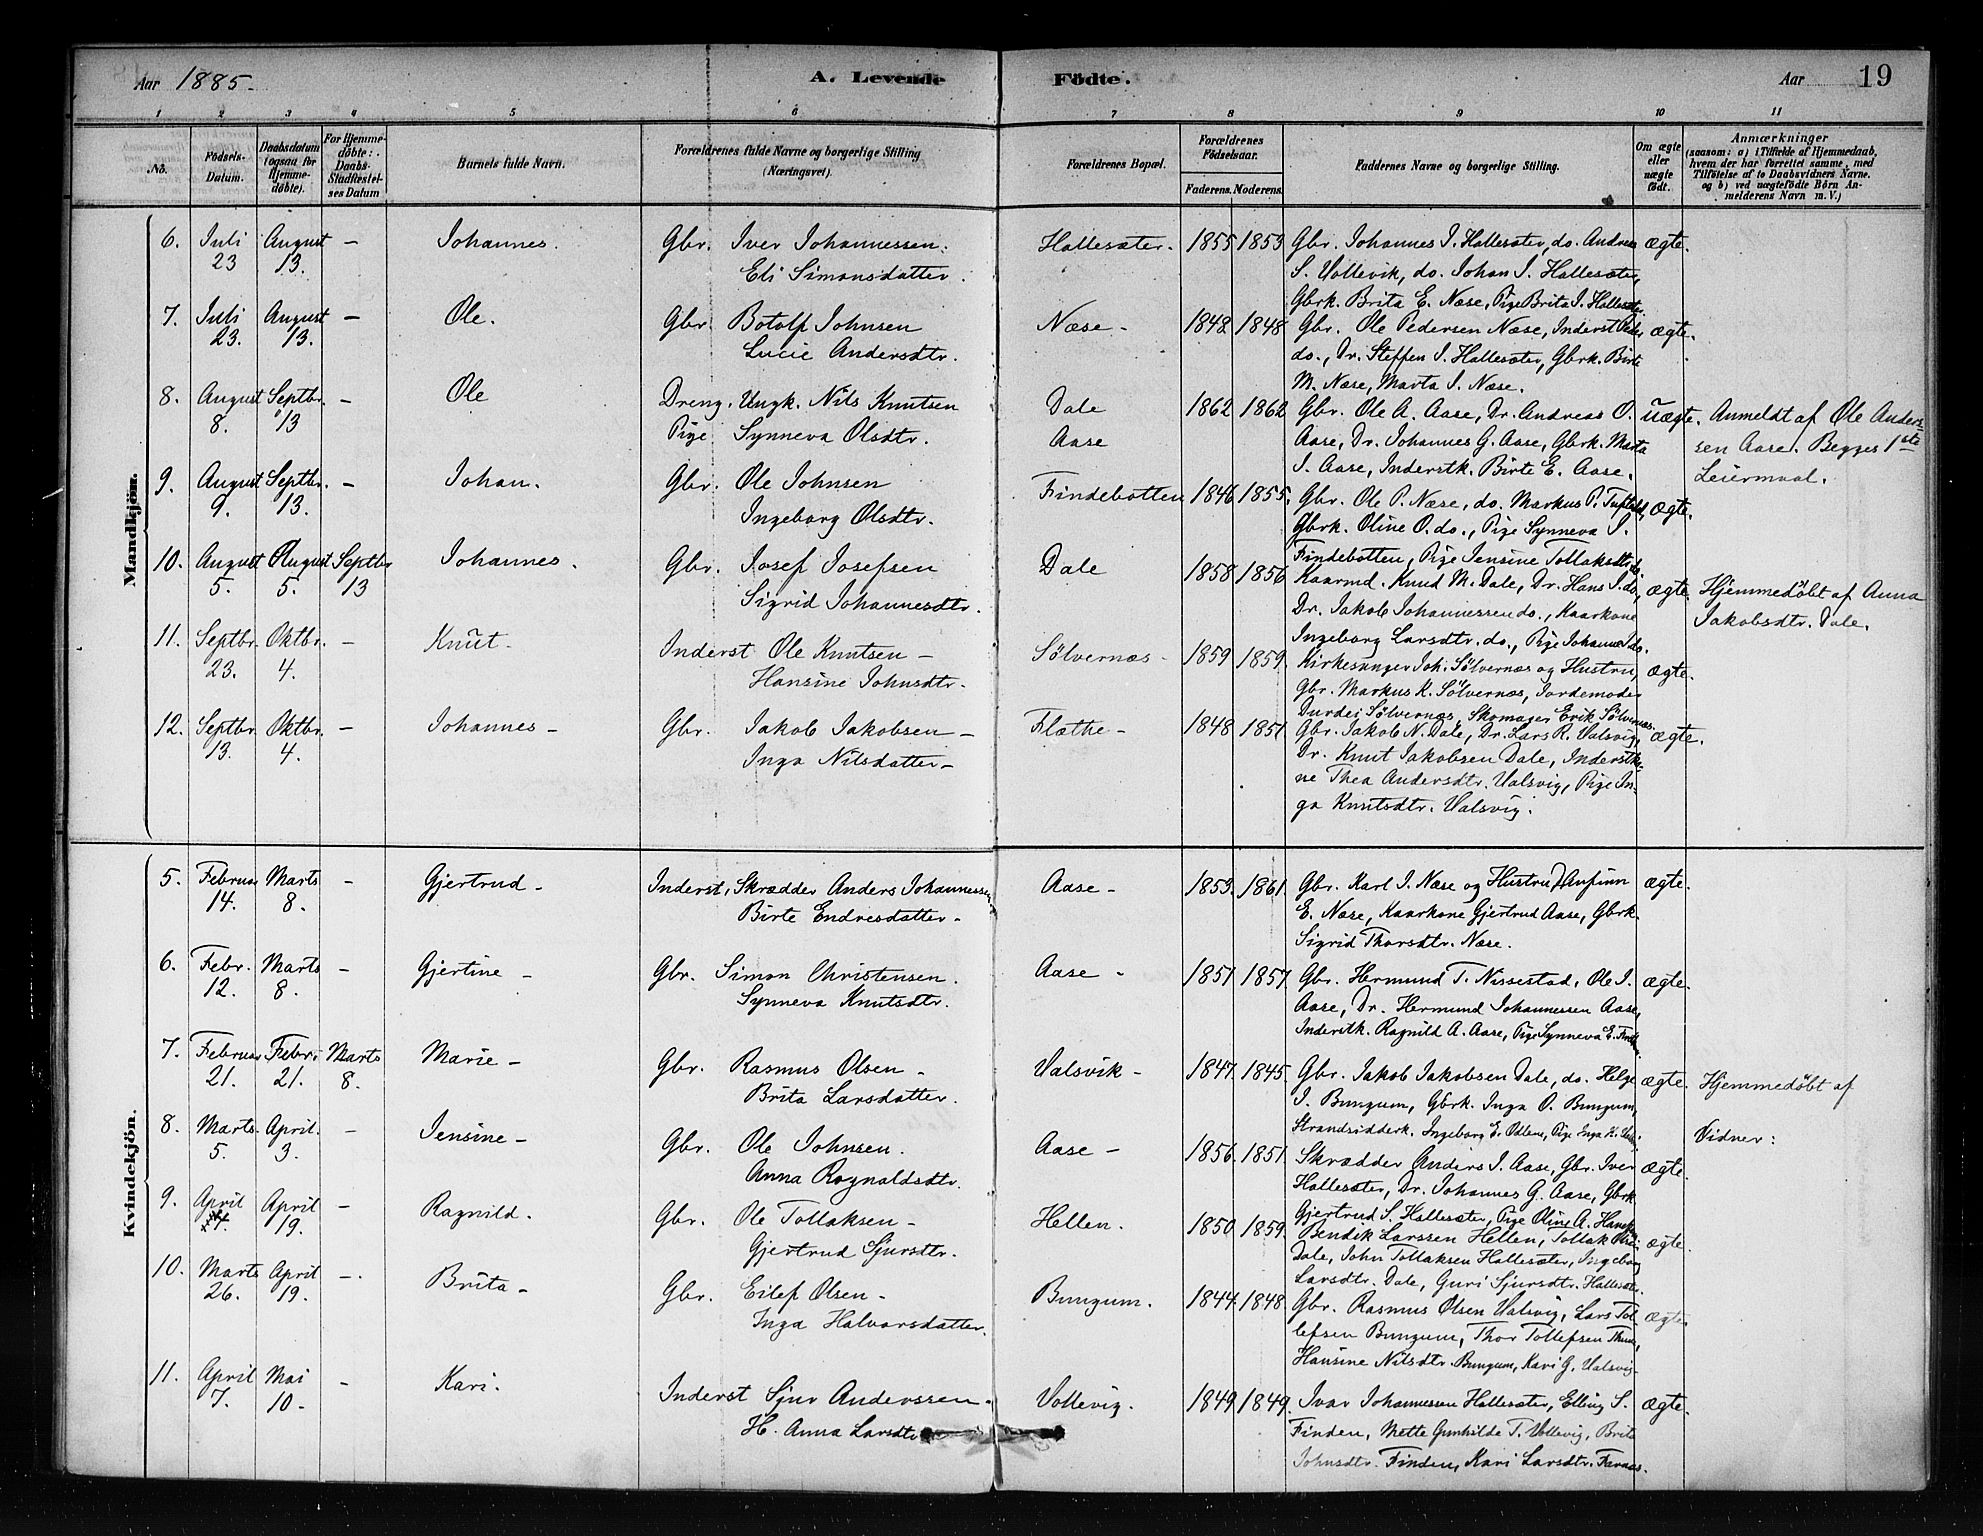 Aar 1885. A. Levende Födte. Aar 19
1 2 3 4 5 6 7 8 9 10 11
No. Födsels-Datum. Daabsdatum (ogsaa for Hjemmedöbte). For Hjemmedöbte: Daabs-Stadfæstelses Datum Barnets fulde Navn. Forældrenes fulde Navne og borgerlige Stilling (Næringsvei). Forældrenes Bopæl. Forældrenes Födselsaar. Faderens. Moderens. Faddernes Navne og borgerlige Stilling. Om ægte eller uægte födt. Anmærkninger (saasom: a) i Tilfælde af Hjemmedaab, hvem der har forrettet samme, med Tilföielse af to Daabsvidners Navne, og b) ved uægtefödte Börn Anmelderens Navn m. V.)
Mandkjön.
6. Juli August – Johannes. Gbr. Iver Johannessen. Hallesæter. 1855 1853 Gbr. Johannes I. Hallesæter, do. Andreas ægte.
23 13. Eli Simonsdatter. S. Vollevik, do. Johan I. Hallesæter,
Gbrk. Brita E. Næse, Pige Brita I. Hallesæter.
7. Juli August – Ole. Gbr. Botolf Johnsen Næse – 1842 1848 Gbr. Ole Pedersen Næse, Inderst Peder ægte.
23. 13. Lucie Andersdtr. do., Dr. Steffen I. Hallesæter, Gbrk. Birte
M. Næse, Marta I. Næse.
8. August Septbr. – Ole Dreng. Ungk. Nils Knutsen Dale 1862 1862 Gbr. Ole A. Aase, Dr. Andreas O. uægte. Anmeldt af Ole Anders-
8. 13 Pige Synneva Olsdtr. Aase Aase, Dr. Johannes G. Aase, Gbrk. Marta sen Aase. Begges 1ste
I. Aase, Inderstk. Birte E. Aase. Leiermaal.
9. August Septbr. – Johan. Gbr. Ole Johnsen Findebotten 1846 1855. Gbr. Ole P. Næse, do. Markus P. ægte.
9. 13. Ingeborg Olsdtr. Gbrk. Oline O. do., Pige Synneva I.
Findebotten, Pige Jensine Tollaksdtr. do.
10. August August Septbr. Johannes. Gbr. Josef Josefsen Dale 1858 1856 Kaarmd. Knud M. Dale, Dr. Hans I. do., ægte. Hjemmedöbt af Anna
5. 5. 13 Sigrid Johannesdtr. Dr. Jakob Johannessen do., Kaarkone Jakobsdtr. Dale.
Ingeborg Larsdtr. do., Pige Johanne I. do.
11. Septbr. Oktbr. – Knut. Inderst Ole Knutsen – Sölvernæs – 1859 1859. Kirkesanger Joh. Sölvernæs og Hustru, ægte.
23. 4. Hansine Johnsdtr. Gbr. Markus K. Sölvernæs, Jordemoder
Durdei Sölvernæs, Skomager Erik Sölvernæs.
12. Septbr. Oktbr. – Johannes – Gbr. Jakob Jakobsen – Flæthe – 1848 1851. Gbr. Jakob N. Dale, Dr. Lars R. Valsvig, ægte.
13. 4. Inga Nilsdatter – Dr. Knut Jakobsen Dale, Inderstk-
ne Thea Andersdtr. Valsvig, Pige In-
ga Knutsdtr. Valsvig.
Kvindekjön.
5. Februar Marts – Gjertrud – Inderst, Skrædder Anders Johannessen Aase – 1853. 1861. Gbr. Karl I. Næse og Hustru, Anfinn ægte.
14. 8. Birte Endresdatter – E. Næse, Kaarkone Gjertrud Aase, Gbrk.
Sigrid Thorsdtr. Næse.
6. Febr. Marts – Gjertine – Gbr. Simon Christensen. Aase – 1851 1857 Gbr. Hermund T. Nissestad, Ole I. ægte.
12. 8. Synneva Knutsdtr. Aase, Dr. Hermund Johannessen Aase,
Inderstk. Ragnild A. Aase, Pige Synneva E.
7. Februar Febr. Marts Marie – Gbr. Rasmus Olsen – Valsvik – 1847. 1845. Gbr. Jakob Jakobsen Dale, do. Helge ægte. Hjemmedöbt af
21. 21. 8. Brita Larsdatter. I. Bungum, Gbrk. Inga O. Bungum,
Strandsidderk. Ingeborg E. Odlem, Pige Inga K. Vidner:
8. Marts April. – Jensine – Gbr. Ole Johnsen. Aase – 1856. 1851. Skrædder Anders I. Aase, Gbr. Iver ægte.
5. 3. Anna Rognaldsdtr. Hallesæter, Dr. Johannes G. Aase, Gbrk
Gjertrud S. Hallesæter, Pige Oline A.
9. April April – Ragnild. Gbr. Ole Tollaksen – Hellen. 1850 1859. Bendik Larssen Hellen, Tollak ægte.
4. 19. Gjertrud Sjursdtr. Dale, John Tollaksen Hallesæter, Ingeborg
Larsdtr. Dale, Guri Sjursdtr. Hallesæter.
10. Marts April – Brita – Gbr. Eilef Olsen – Bungum. 1844. 1848. Gbr. Rasmus Olsen Valsvig, Lars Tol- ægte.
26. 19. Inga Halvorsdatter. lefsen Bungum, Thor Tollefsen
Hansine Nilsdtr. Bungum, Kari G. Valsvig
11. April Mai – Kari. Inderst Sjur Anderssen – Vollevig. 1849 1849. Ivar Johannessen Hallesæter, Elling S. ægte.
7. 10. H. Anna Larsdtr. Finden, Mette Gunhilde T. Vollevig, Brite
Johnsdtr. Finden, Kari Larsdtr.